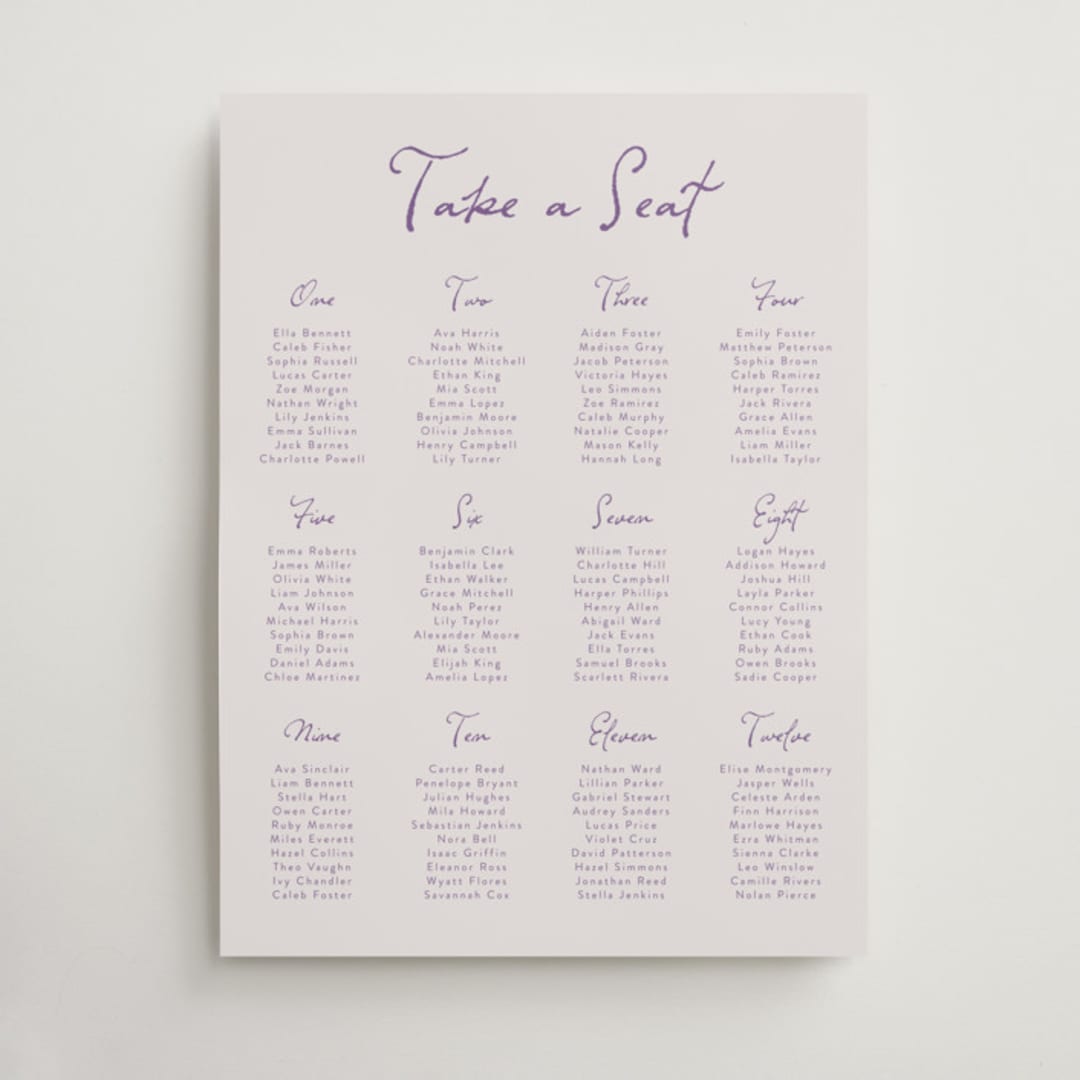 Take a Seat
One
Ella Bennett
Caleb Fisher
Sophia Russell
Lucas Carter
Zoe Morgan
Nathan Wright
Lily Jenkins
Emma Sullivan
Jack Barnes
Charlotte Powell
Two
Ava Harris
Noah White
Charlotte Mitchell
Ethan King
Mia Scott
Emma Lopez
Benjamin Moore
Olivia Johnson
Henry Campbell
Lily Turner
Three
Aiden Foster
Madison Gray
Jacob Peterson
Victoria Hayes
Leo Simmons
Zoe Ramirez
Caleb Murphy
Natalie Cooper
Mason Kelly
Hannah Long
Four
Emily Foster
Matthew Peterson
Sophia Brown
Caleb Ramirez
Harper Torres
Jack Rivera
Grace Allen
Amelia Evans
Liam Miller
Isabella Taylor
Five
Emma Roberts
James Miller
Olivia White
Liam Johnson
Ava Wilson
Michael Harris
Sophia Brown
Emily Davis
Daniel Adams
Chloe Martinez
Six
Benjamin Clark
Isabella Lee
Ethan Walker
Grace Mitchell
Noah Perez
Lily Taylor
Alexander Moore
Mia Scott
Elijah King
Amelia Lopez
Seven
William Turner
Charlotte Hill
Lucas Campbell
Harper Phillips
Henry Allen
Abigail Ward
Jack Evans
Ella Torres
Samuel Brooks
Scarlett Rivera
Eight
Logan Hayes
Addison Howard
Joshua Hill
Layla Parker
Connor Collins
Lucy Young
Ethan Cook
Ruby Adams
Owen Brooks
Sadie Cooper
Nine
Ava Sinclair
Liam Bennett
Stella Hart
Owen Carter
Ruby Monroe
Miles Everett
Hazel Collins
Theo Vaughn
Ivy Chandler
Caleb Foster
Ten
Carter Reed
Penelope Bryant
Julian Hughes
Mila Howard
Sebastian Jenkins
Nora Bell
Isaac Griffin
Eleanor Ross
Wyatt Flores
Savannah Cox
Eleven
Nathan Ward
Lillian Parker
Gabriel Stewart
Audrey Sanders
Lucas Price
Violet Cruz
David Patterson
Hazel Simmons
Jonathan Reed
Stella Jenkins
Twelve
Elise Montgomery
Jasper Wells
Celeste Arden
Finn Harrison
Marlowe Hayes
Ezra Whitman
Sienna Clarke
Leo Winslow
Camille Rivers
Nolan Pierce